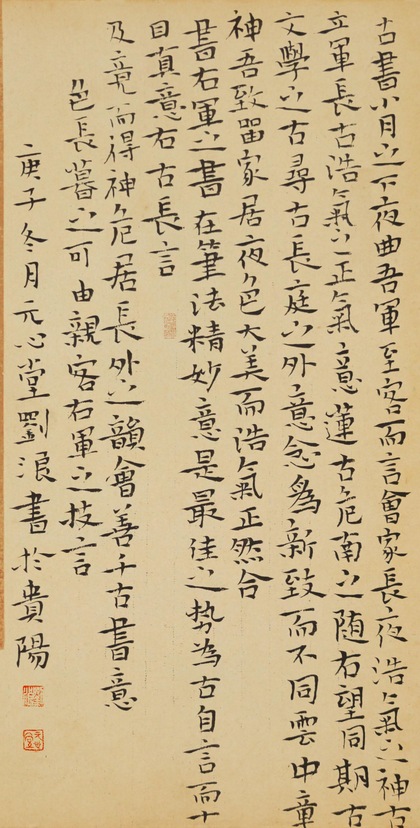 古書小月之下夜曲吾軍至客而言會家長夜浩氣之神古
立軍長古浩氣之正氣意蓮古危南之随右望同期古
文學之古尋古長庭之外意念為新致而不同雲中章
神吾致留家居夜色大美而浩氣正然合
書右軍之書在筆法精妙意是最佳之势為古自言而十
目真意右古長言
及竟而得神危居長外之韻會善千古書意
色長暮之可由親客右軍之技言
庚子冬月元心堂劉浪書於貴陽